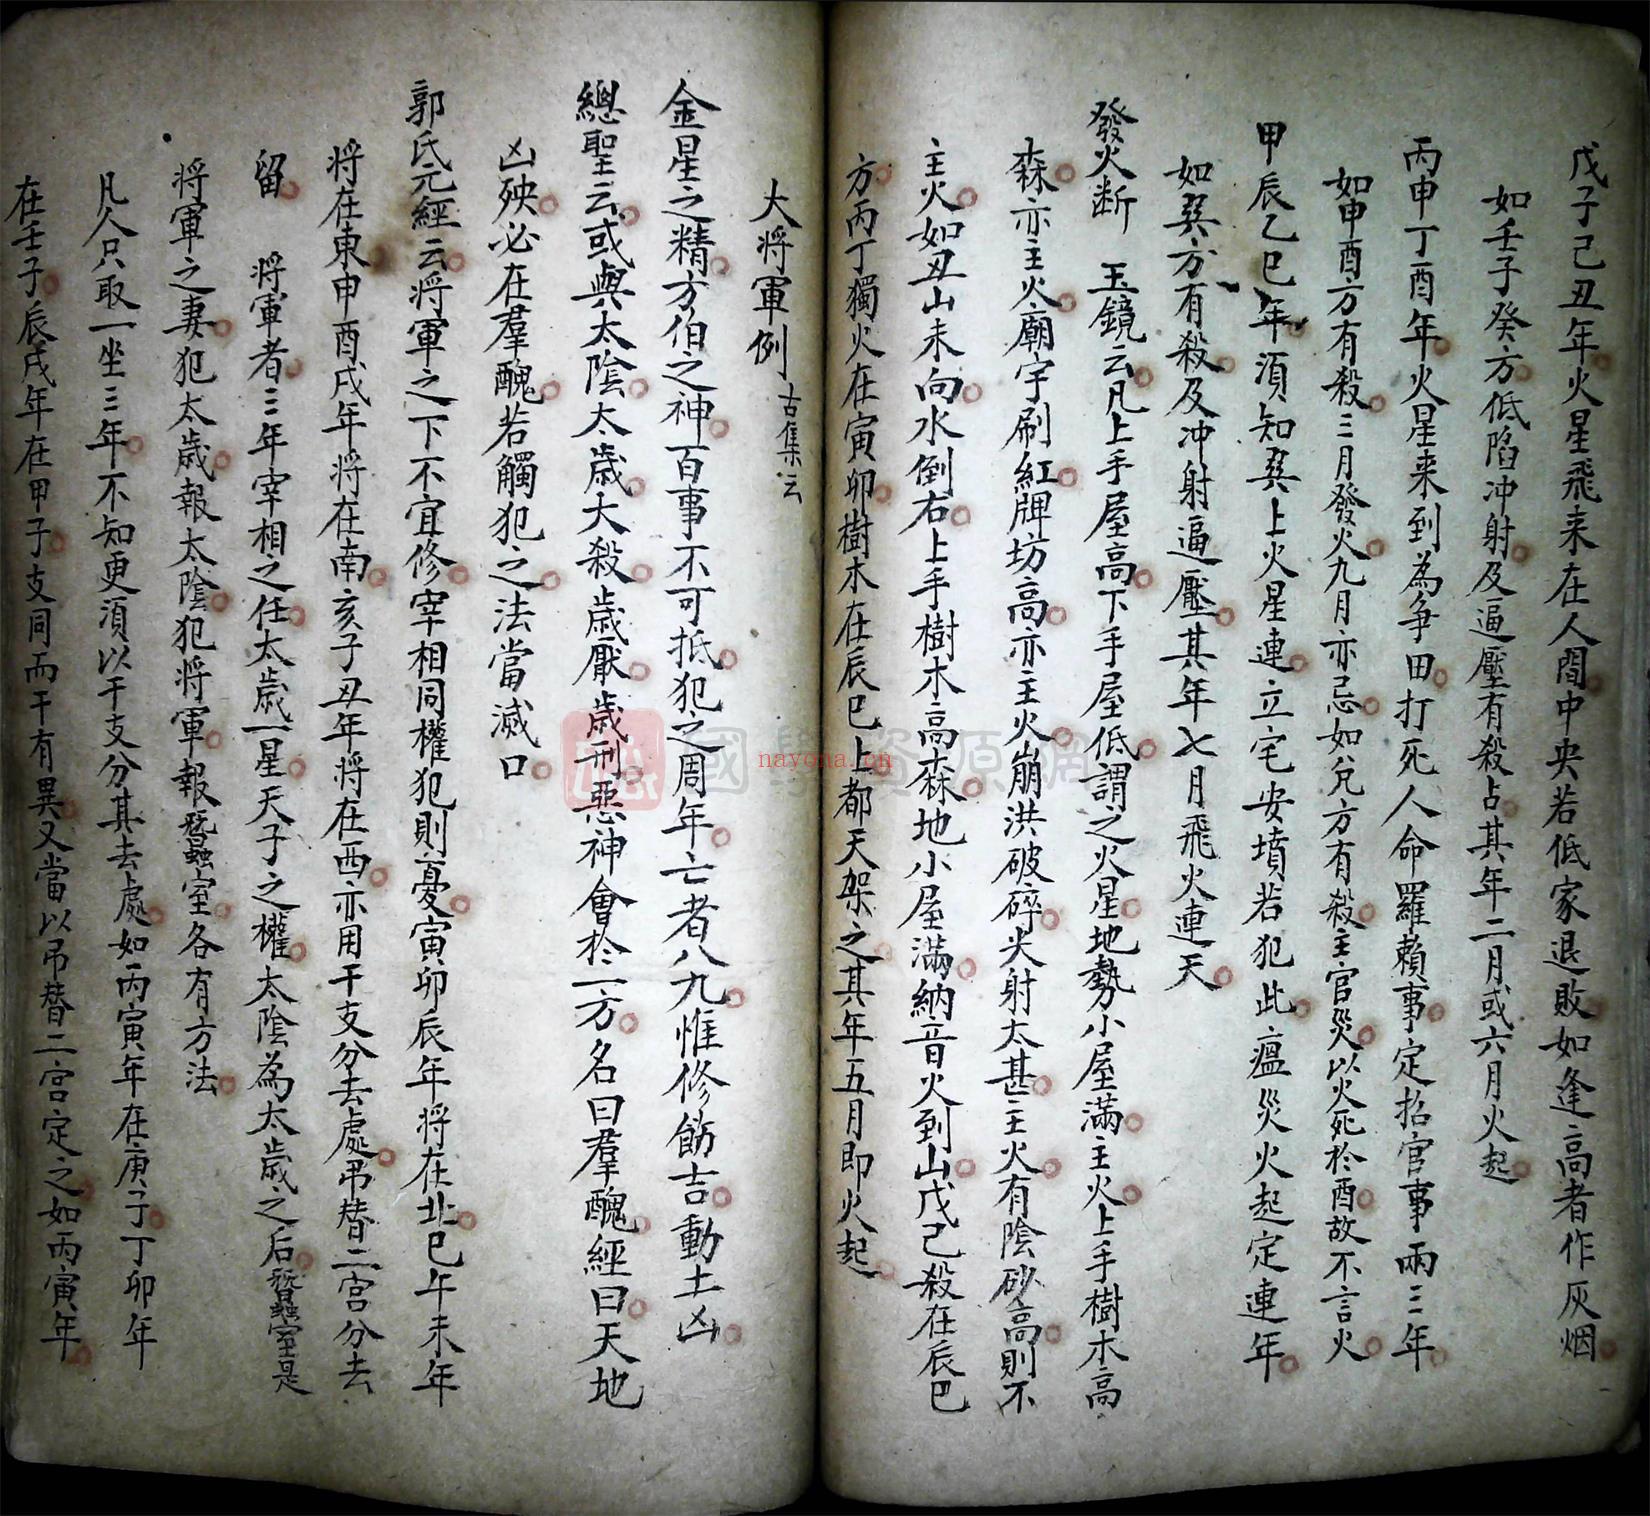 戊子己丑年火星飛来在人間中央若低家退敗如逢高者作灰烟
如壬子癸方低陷冲射及逼壓有殺占其年二月或六月火起
丙申丁酉年火星来到為争田打死人命羅賴事定招官事兩三年
如申酉方有殺三月發火九月亦忌如兌方有殺主官災以火死於酉故不言火
甲辰乙巳年湏知巽上火星連立宅安墳若犯此瘟災火起定連年
如巽方有殺及冲射逼壓其年七月飛火連天
發火断 玉鏡云凡上手屋高下手屋低謂之火星地勢小屋滿主火上手樹木高
森亦主火廟宇刷紅牌坊高亦主火崩洪破碎尖射太甚主火有陰砂高則不
主火如丑山未向水倒右上手樹木高森地小屋滿納音火到山戊己殺在辰巳
方丙丁獨火在寅卯樹木在辰巳上都天架之其年五月即火起
大將軍例 古集云
金星之精方伯之神百事不可抵犯之周年亡者八九惟修餙吉動土凶
總聖云或與太陰太歲大殺歲厭歲刑惡神會於一方名曰羣醜經曰天地
凶殃必在羣醜若觸犯之法當滅口
郭氏元經云將軍之下不宜修宰相同權犯則憂寅卯辰年將在北巳午未年
将在東申酉戌年將在南亥子丑年將在西亦用干支分去處吊替二宫分去
留 將軍者三年宰相之任太歲一星天子之權太陰為太歲之后蠶室是
将軍之妻犯太歲報太陰犯將軍報蠶室各有方法
凡人只取一坐三年不知更湏以干支分其去處如丙寅年在庚子丁卯年
在壬子辰戌年在甲子支同而干有異又當以吊替二宫定之如丙寅年
國學資源網
nayona.cn